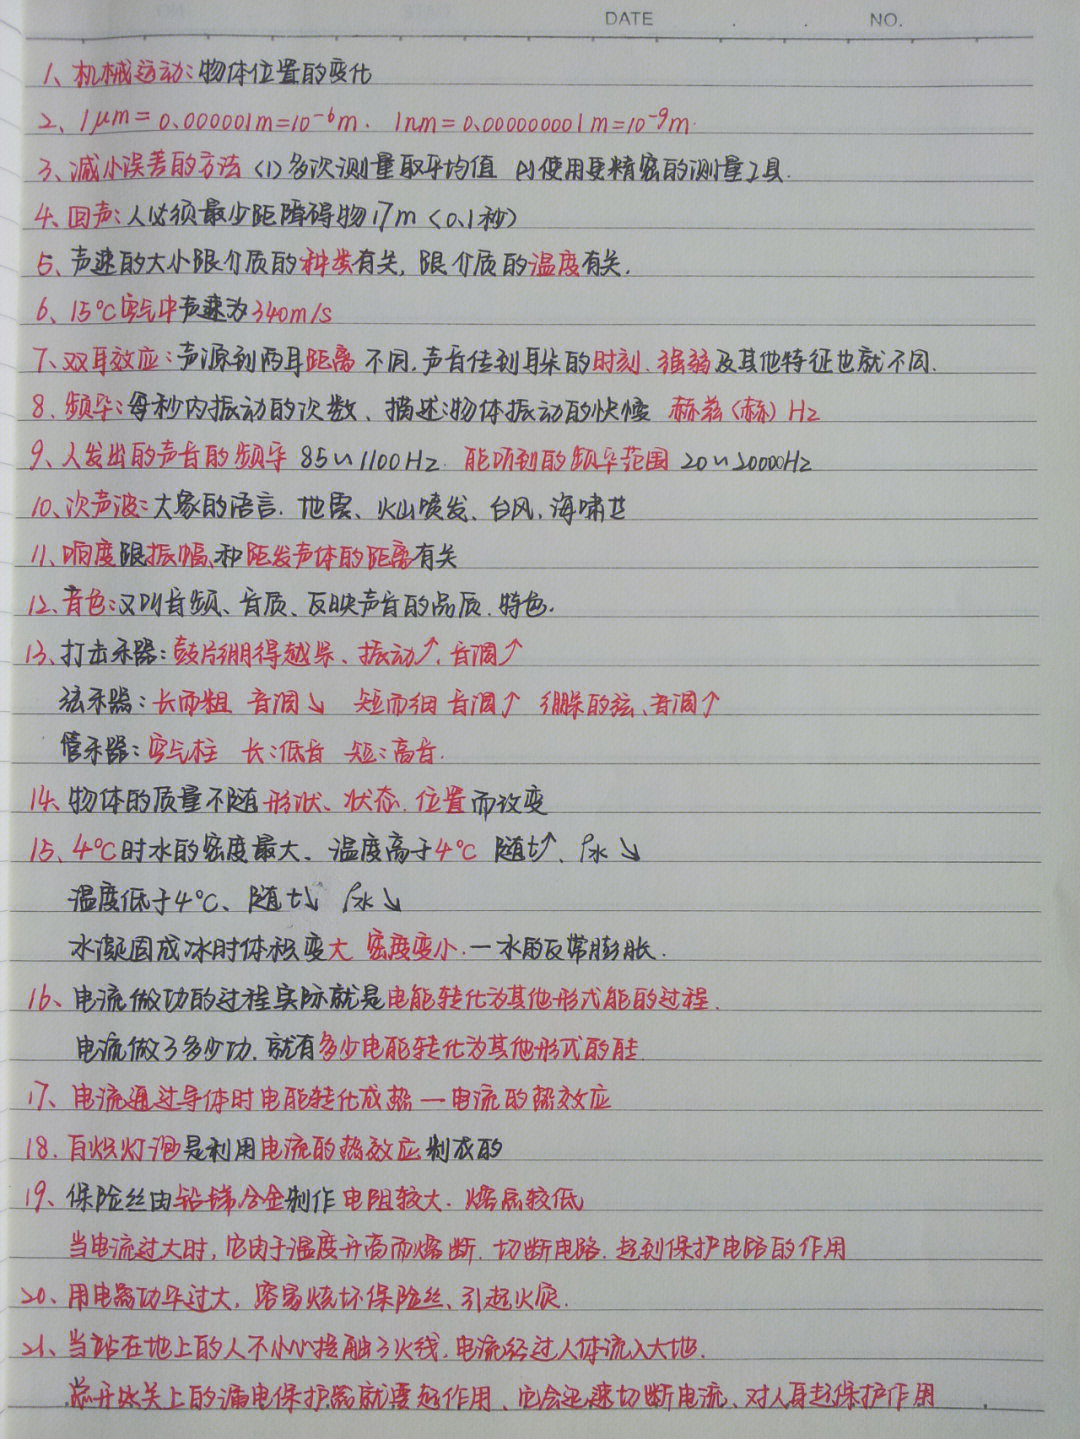 DATE . . NO.
1、机械运动:物体位置的变化
2、1μm=0.000001m=10⁻⁶m. 1nm=0.000000001m=10⁻⁹m.
3、减小误差的方法 (1)多次测量取平均值 (2)使用更精密的测量工具.
4、回声:人必须最少距障碍物17m (0.1秒)
5、声速的大小跟介质的种类有关,跟介质的温度有关.
6、15℃空气中声速为340m/s
7、双耳效应:声源到两耳距离不同.声音传到耳朵的时刻、强弱及其他特征也就不同.
8、频率:每秒内振动的次数、描述:物体振动的快慢 赫兹(赫) Hz
9、人发出的声音的频率 85~1100Hz. 能听到的频率范围 20~20000Hz
10、次声波:大象的语言.地震、火山喷发、台风、海啸
11、响度跟振幅、和距发声体的距离有关
12、音色:又叫音频、音质、反映声音的品质.特色.
13、打击乐器:鼓片绷得越紧、振动↑,音调↑
弦乐器:长而粗 音调↘ 短而细 音调↑ 绷紧的弦、音调↑
管乐器:空气柱 长:低音 短:高音.
14、物体的质量不随形状、状态.位置而改变
15、4℃时水的密度最大、温度高于4℃ 随t↑、ρ水↘
温度低于4℃、随t↘ ρ水↘
水凝固成冰时体积变大 密度变小.—水的反常膨胀.
16、电流做功的过程实际就是电能转化为其他形式能的过程.
电流做了多少功.就有多少电能转化为其他形式的能
17、电流通过导体时电能转化成热—电流的热效应
18.白炽灯泡是利用电流的热效应制成的
19、保险丝由铅锑合金制作 电阻较大.熔点较低
当电流过大时,它由于温度升高而熔断.切断电路.起到保护电路的作用
20、用电器功率过大,容易烧坏保险丝、引起火灾.
21、当站在地上的人不小心接触了火线,电流经过人体流入大地.
总开关上的漏电保护器就要起作用、它会迅速切断电流、对人身起保护作用.